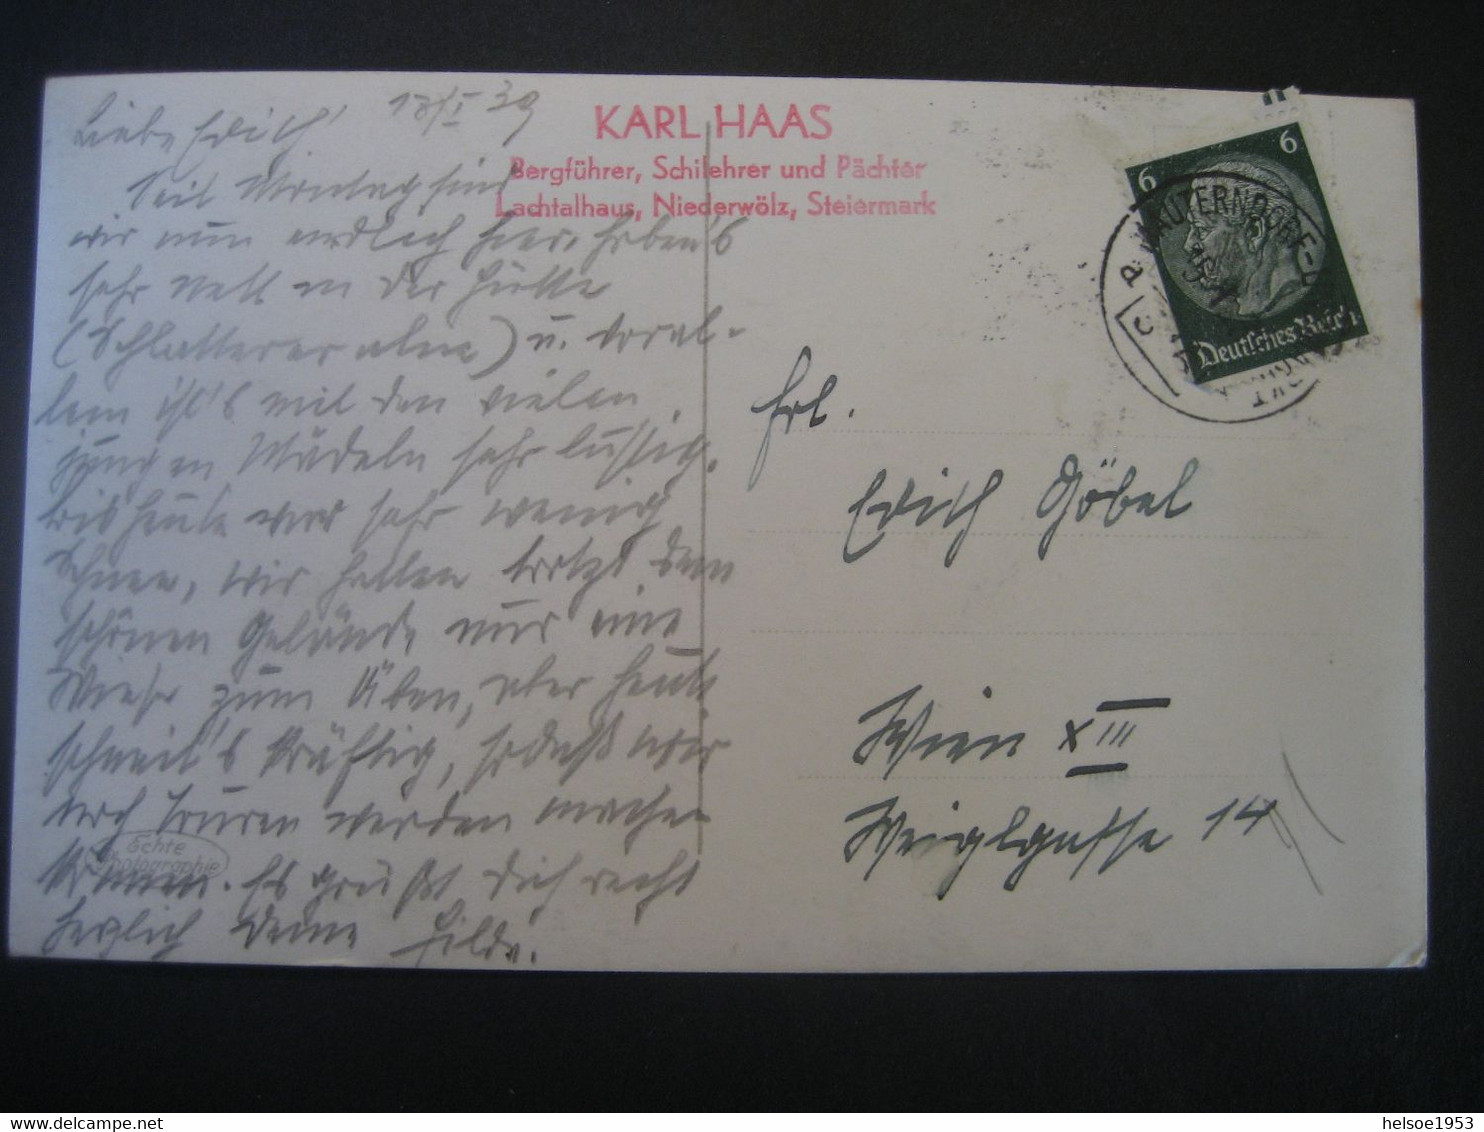 Liebe Edith! 18/I 39
Seit Montag sind
wir nun endlich hier. Haben's
sehr nett in der Hütte
(Schlattereralm) u. voral-
lem ist's mit den vielen
jungen Mädeln sehr lustig.
Bis heute war sehr wenig
Schnee, wir hatten trotz dem
schönen Gelände nur eine
Wiese zum Üben, aber heute
schneit's kräftig, sodaß wir
noch Touren werden machen
können. Es grüßt Dich recht
herzlich Deine Hilde.
Echte
Photographie
KARL HAAS
Bergführer, Schilehrer und Pächter
Lachtalhaus, Niederwölz, Steiermark
6 6
Deutsches Reich
UNZMARKT-MAUTERNDORF
Frl.
Edith Göbel
Wien XIII
Weiglgasse 14
helsoe1953